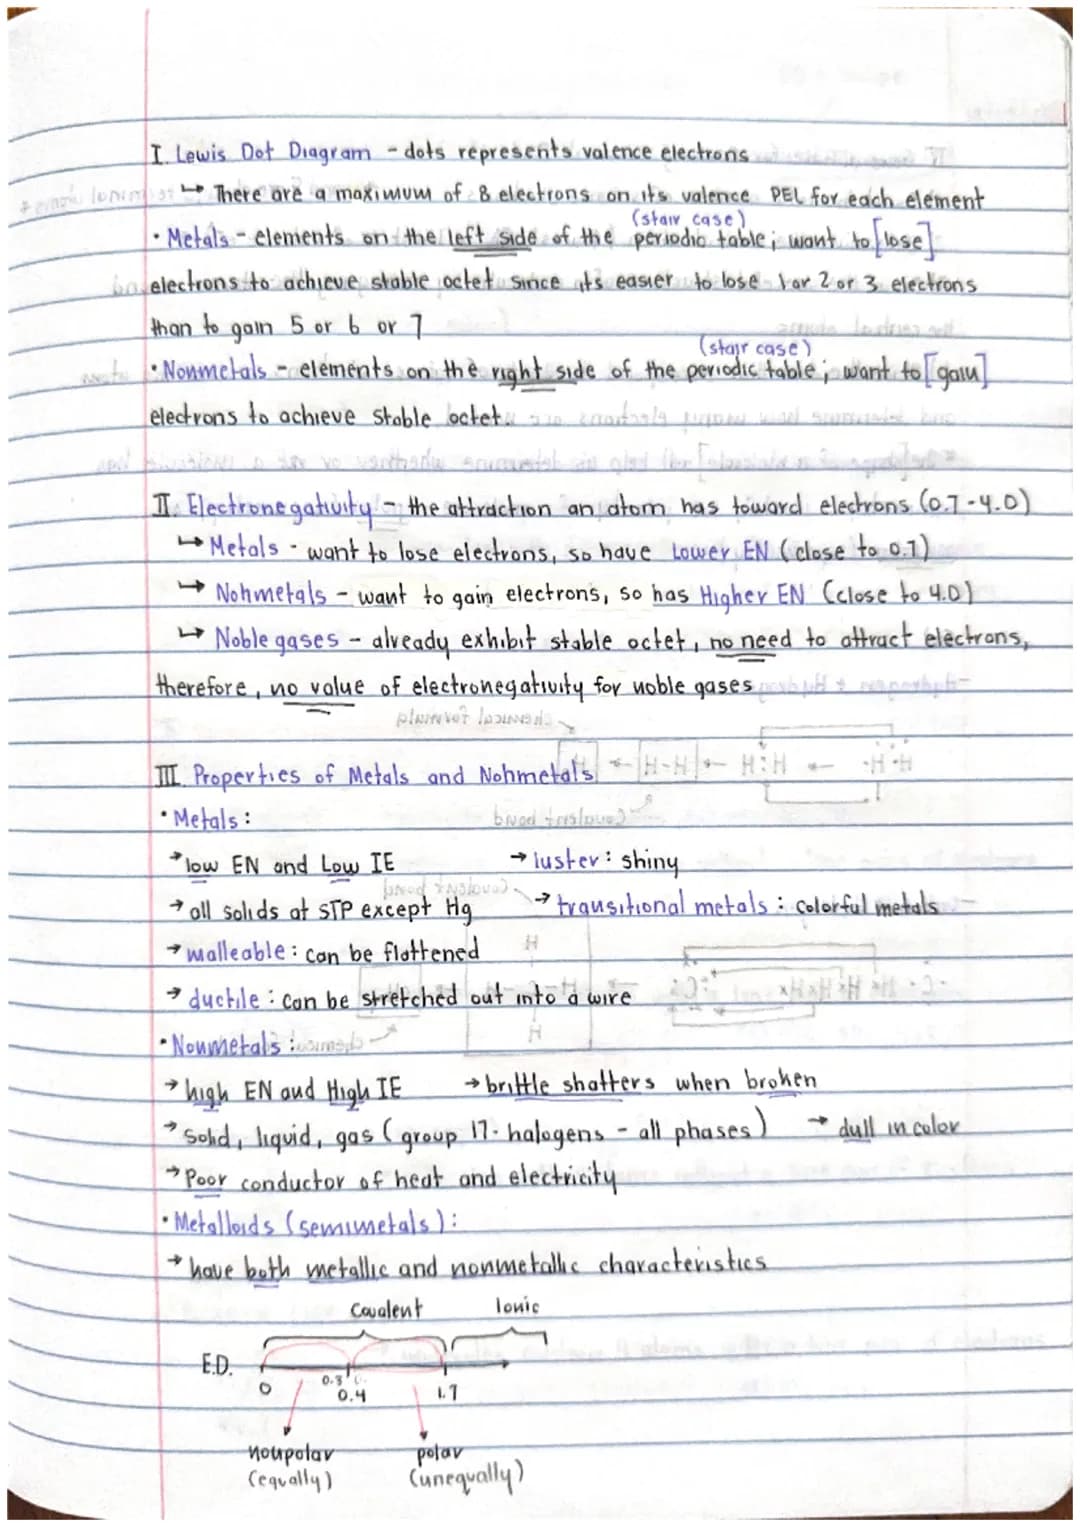 I. Lewis Dot Diagram - dots represents valence electrons
↳ There are a maximum of 8 electrons on its valence PEL for each element
(stair case)
• Metals - elements on the left side of the periodic table; want to [lose]
electrons to achieve stable octet since its easier to lose 1 or 2 or 3 electrons
than to gain 5 or 6 or 7
(stair case)
• Nonmetals - elements on the right side of the periodic table; want to [gain]
electrons to achieve stable octet.
II. Electronegativity - the attraction an atom has toward electrons (0.7-4.0)
↳ Metals - want to lose electrons, so have Lower EN (close to 0.7)
↳ Nonmetals - want to gain electrons, so has Higher EN (close to 4.0)
↳ Noble gases - already exhibit stable octet, no need to attract electrons,
therefore, no value of electronegativity for noble gases
III. Properties of Metals and Nonmetals
• Metals:
→ low EN and Low IE → luster: shiny
→ all solids at STP except Hg → transitional metals: colorful metals
→ malleable: can be flattened
→ ductile: can be stretched out into a wire
• Nonmetals:
→ high EN and High IE → brittle shatters when broken
→ Solid, liquid, gas (group 17- halogens - all phases) → dull in color
→ Poor conductor of heat and electricity
• Metalloids (semimetals):
→ have both metallic and nonmetallic characteristics
Covalent Ionic
E.D.
0 0.3 0.4 1.7
nonpolar polar
(equally) (unequally)